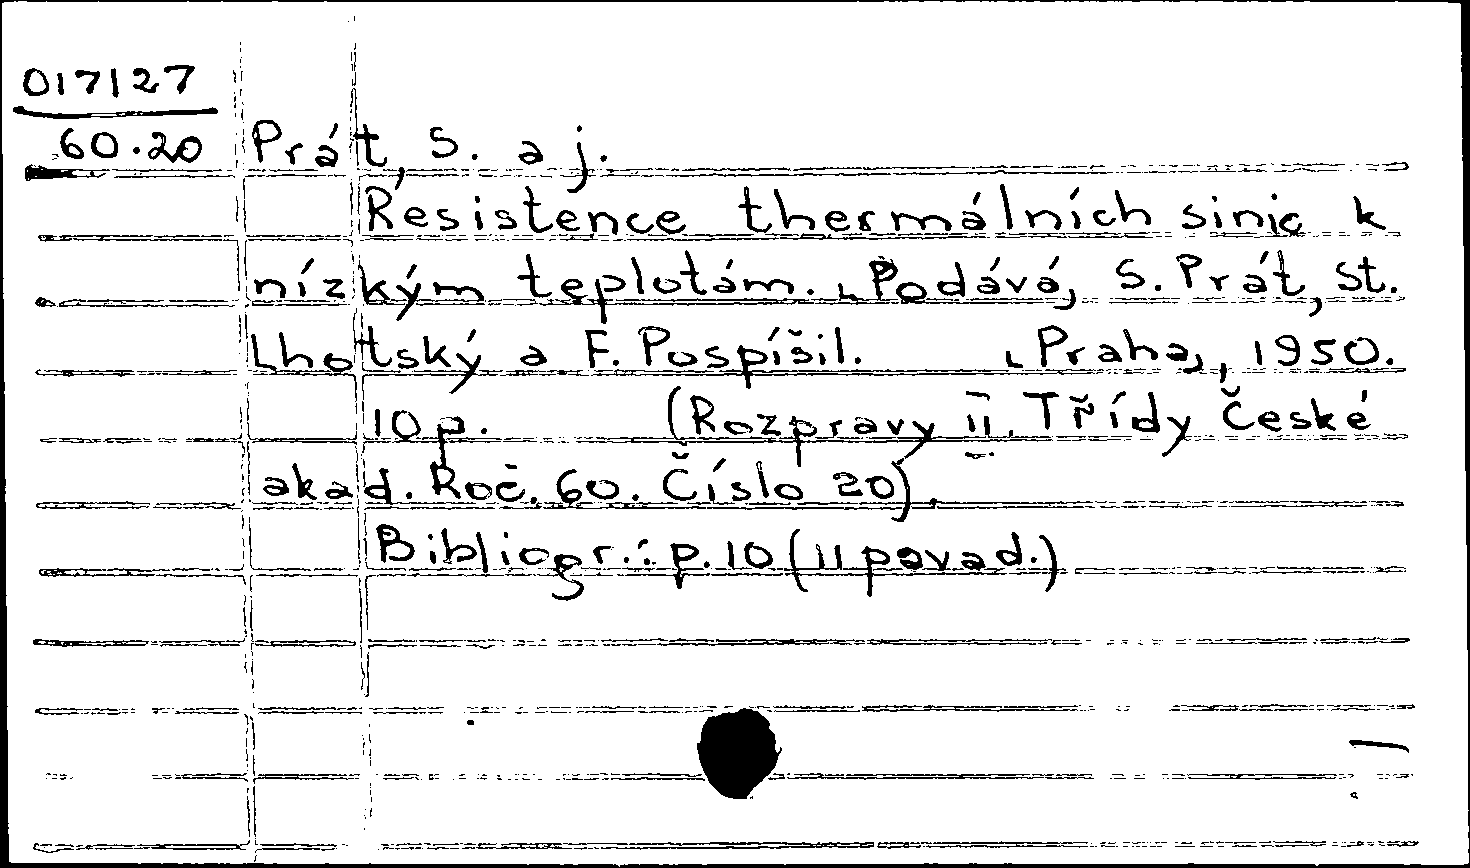 017127
60.20 Prát, S. a j.
Resistence thermálních sinic k
nízkým teplotám. [Podává] S. Prát, St.
Lhotský a F. Pospíšil. [Praha], 1950.
10 p. (Rozpravy II. Třídy České
akad. Roč. 60. Číslo 20).
Bibliogr.: p. 10 (11 pavad.)